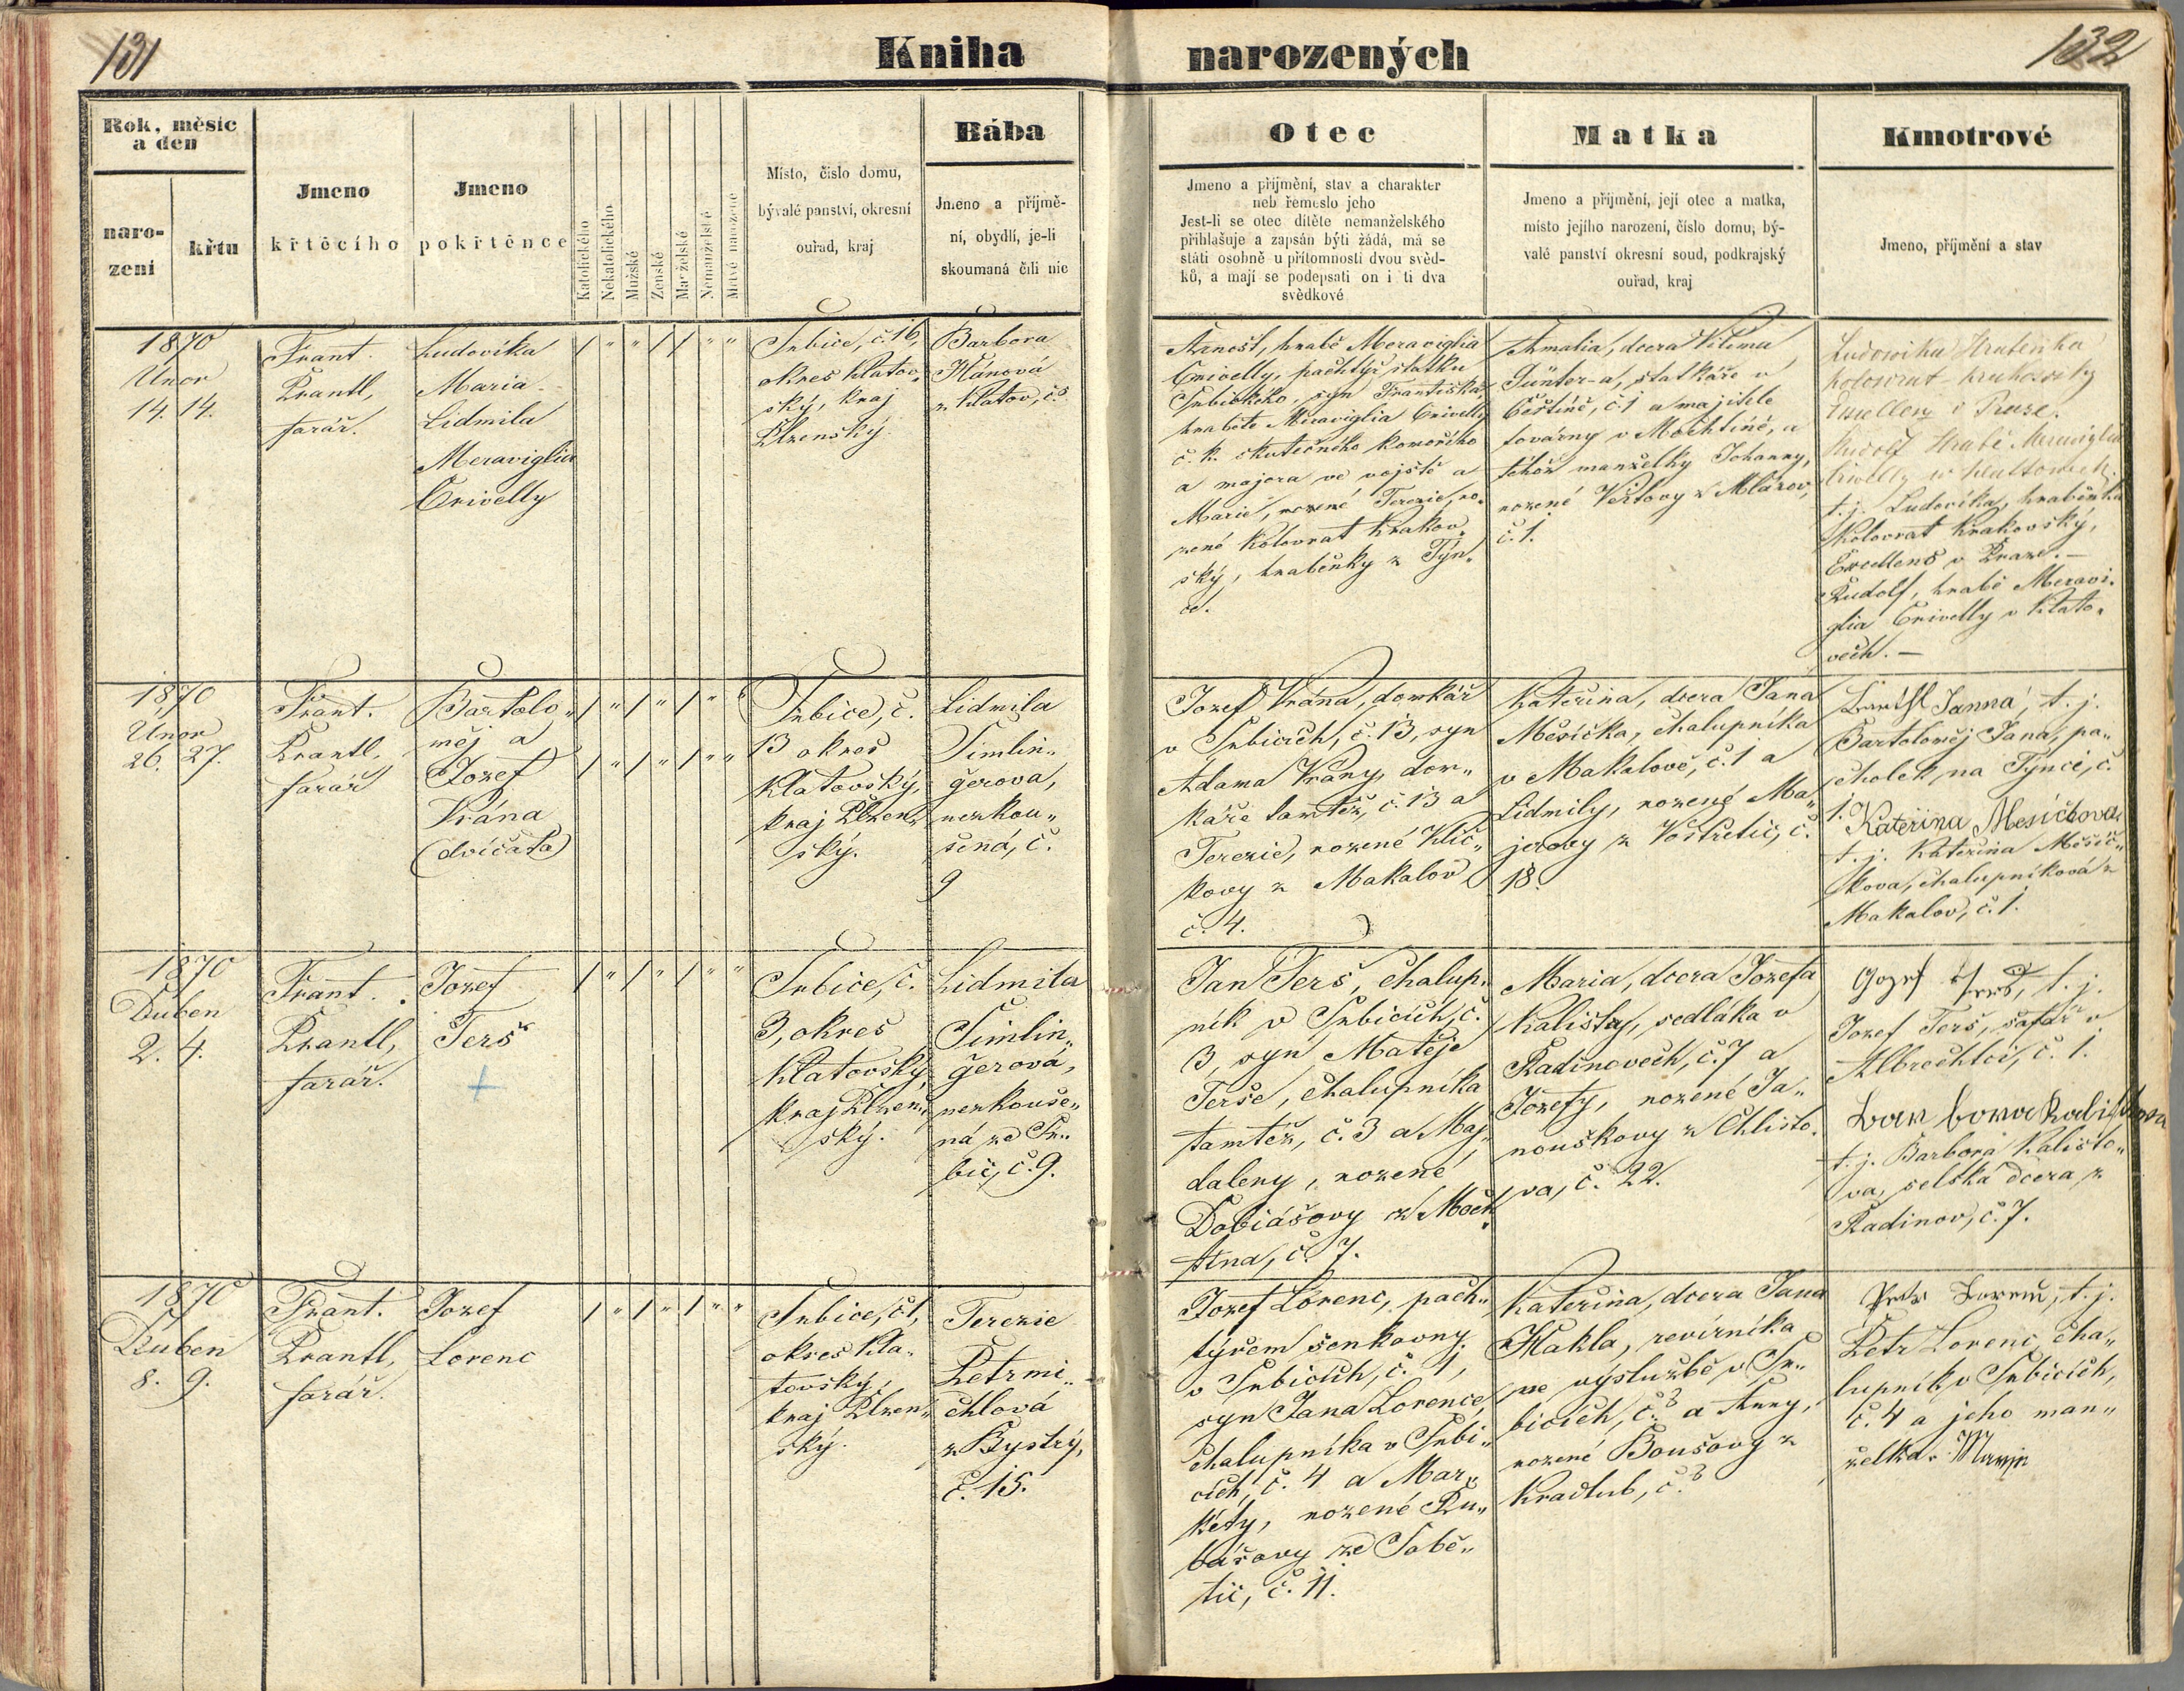 131
Kniha
narozených
132
Rok, měsíc
a den
naro-
zení
křtu
Jmeno
křtěcího
Jmeno
pokřtěnce
Katolického
Nekatolického
Mužské
Ženské
Manželské
Nemanželské
Mrtvě narozené
Místo, číslo domu,
bývalé panství, okresní
ouřad, kraj
Bába
Jmeno a příjmě-
ní, obydlí, je-li
skoumaná čili nic
Otec
Jmeno a přijmění, stav a charakter
neb řemeslo jeho
Jest-li se otec dítěte nemanželského
přihlašuje a zapsán býti žádá, má se
státi osobně u přítomnosti dvou svěd-
ků, a mají se podepsati on i ti dva
svědkové
Matka
Jmeno a přijmění, její otec a matka,
místo jejího narození, číslo domu, bý-
valé panství okresní soud, podkrajský
ouřad, kraj
Kmotrové
Jmeno, příjmění a stav
1870
Únor
14. 14.
Frant.
Prantl,
farář.
Ludovika
Maria
Lidmila
Meraviglia
Crivelly
Srbice, č. 16,
okres klatov„
ský, kraj
Plzenský.
Barbora
Hánová
z Klatov, č.
Arnošt, hrabě Meraviglia
Crivelly, pachtýř statku
Srbického, syn Františka,
hraběte Meraviglia Crivelly
c. k. skutečného komořího
a majora ve vojště a
Marie, rozené Terezie, ro„
zené Kolovrat Krakov„
ský, hraběnky z Týn„
ce.
Amalia, dcera Viléma
Günter-a, statkáře v
Čestíně, č. 1 a majitele
továrny v Mochtíně, a
téhož manželky Johanny,
rozené Veitovy z Mlázov,
č. 1.
Ludowika Hraběnka
Kolowrat Krakowsky
Excellenz v Praze.
Rudolf Hrabě Meraviglia
Crivelly w Klattowech
t. j. Ludovika, hraběnka
Kolovrat Krakovský,
Excellens v Praze. —
Rudolf, hrabě Meravi„
glia Crivelly v Klato„
vech. —
1870
Únor
26. 27.
Frant.
Prantl,
farář
Bartolo„
měj a
Jozef
Vrána
(dvíčata)
Srbice, č.
13 okres
Klatovský,
kraj Plzen„
ský.
Lidmila
Šimlin„
gerova,
nezkou„
šená, č.
9
Jozef Vrána, domkář
v Srbicích, č. 13, syn
Adama Vrány, dom„
káře tamtéž, č. 13 a
Terezie, rozené Klíč„
kovy z Makalov
č. 4.
Kateřina, dcera Jana
Měsíčka, chalupníka
v Makalově, č. 1 a
Lidmily, rozené Ma„
jerovy z Vostřetic, č.
18.
Barthl Janna, t. j.
Bartoloměj Jana, pa„
cholek na Týnci, č.
1.
Kateřina Mesíčkova
t. j. Kateřina Měsíč„
kova, chalupníková z
Makalov, č. 1.
1870
Duben
2. 4.
Frant.
Prantl,
farář.
Jozef
Terš
Srbice, č.
3, okres
Klatovský,
kraj Plzen„
ský.
Lidmila
Šimlin„
gerová,
nezkouše„
ná ze Sr„
bic, č. 9.
Jan Terš, chalup„
ník v Srbicích, č.
3, syn Matěje
Terše, chalupníka
tamtéž, č. 3 a Maj„
daleny, rozené
Dobiášovy z Moch„
tína, č. 7.
Maria, dcera Jozefa
Kalisty, sedláka v
Radinovech, č. 7 a
Jozefy, rozené Ja„
nouškovy z Chlisto„
va, č. 22.
Jozef Terš, t. j.
Jozef Terš, šafář v
Albrechtci, č. 1.
Barbora Kalistova
t. j. Barbora Kalisto„
va, selská dcera z
Radinov, č. 7.
1870
Duben
8. 9.
Frant.
Prantl,
farář.
Jozef
Lorenc
Srbice, č. 1,
okres Kla„
tovský,
kraj Plzen„
ský.
Terezie
Petrmi„
chlová
z Bystrý,
č. 15.
Jozef Lorenc, pach„
týřem šenkovny
v Srbicích, č. 1,
syn Jana Lorence,
chalupníka v Srbi„
cích, č. 4 a Mar„
kéty, rozené Ry„
bářovy ze Sobě„
tic, č. 11.
Kateřina, dcera Jana
Makla, revírníka
ve výslužbě v Sr„
bicích, č. 3 a Anny,
rozené Boušovy z
Kradlub, č. 3
Petr Lorenc, t. j.
Petr Lorenc, cha„
lupník v Srbicích,
č. 4 a jeho man„
želka. Marije